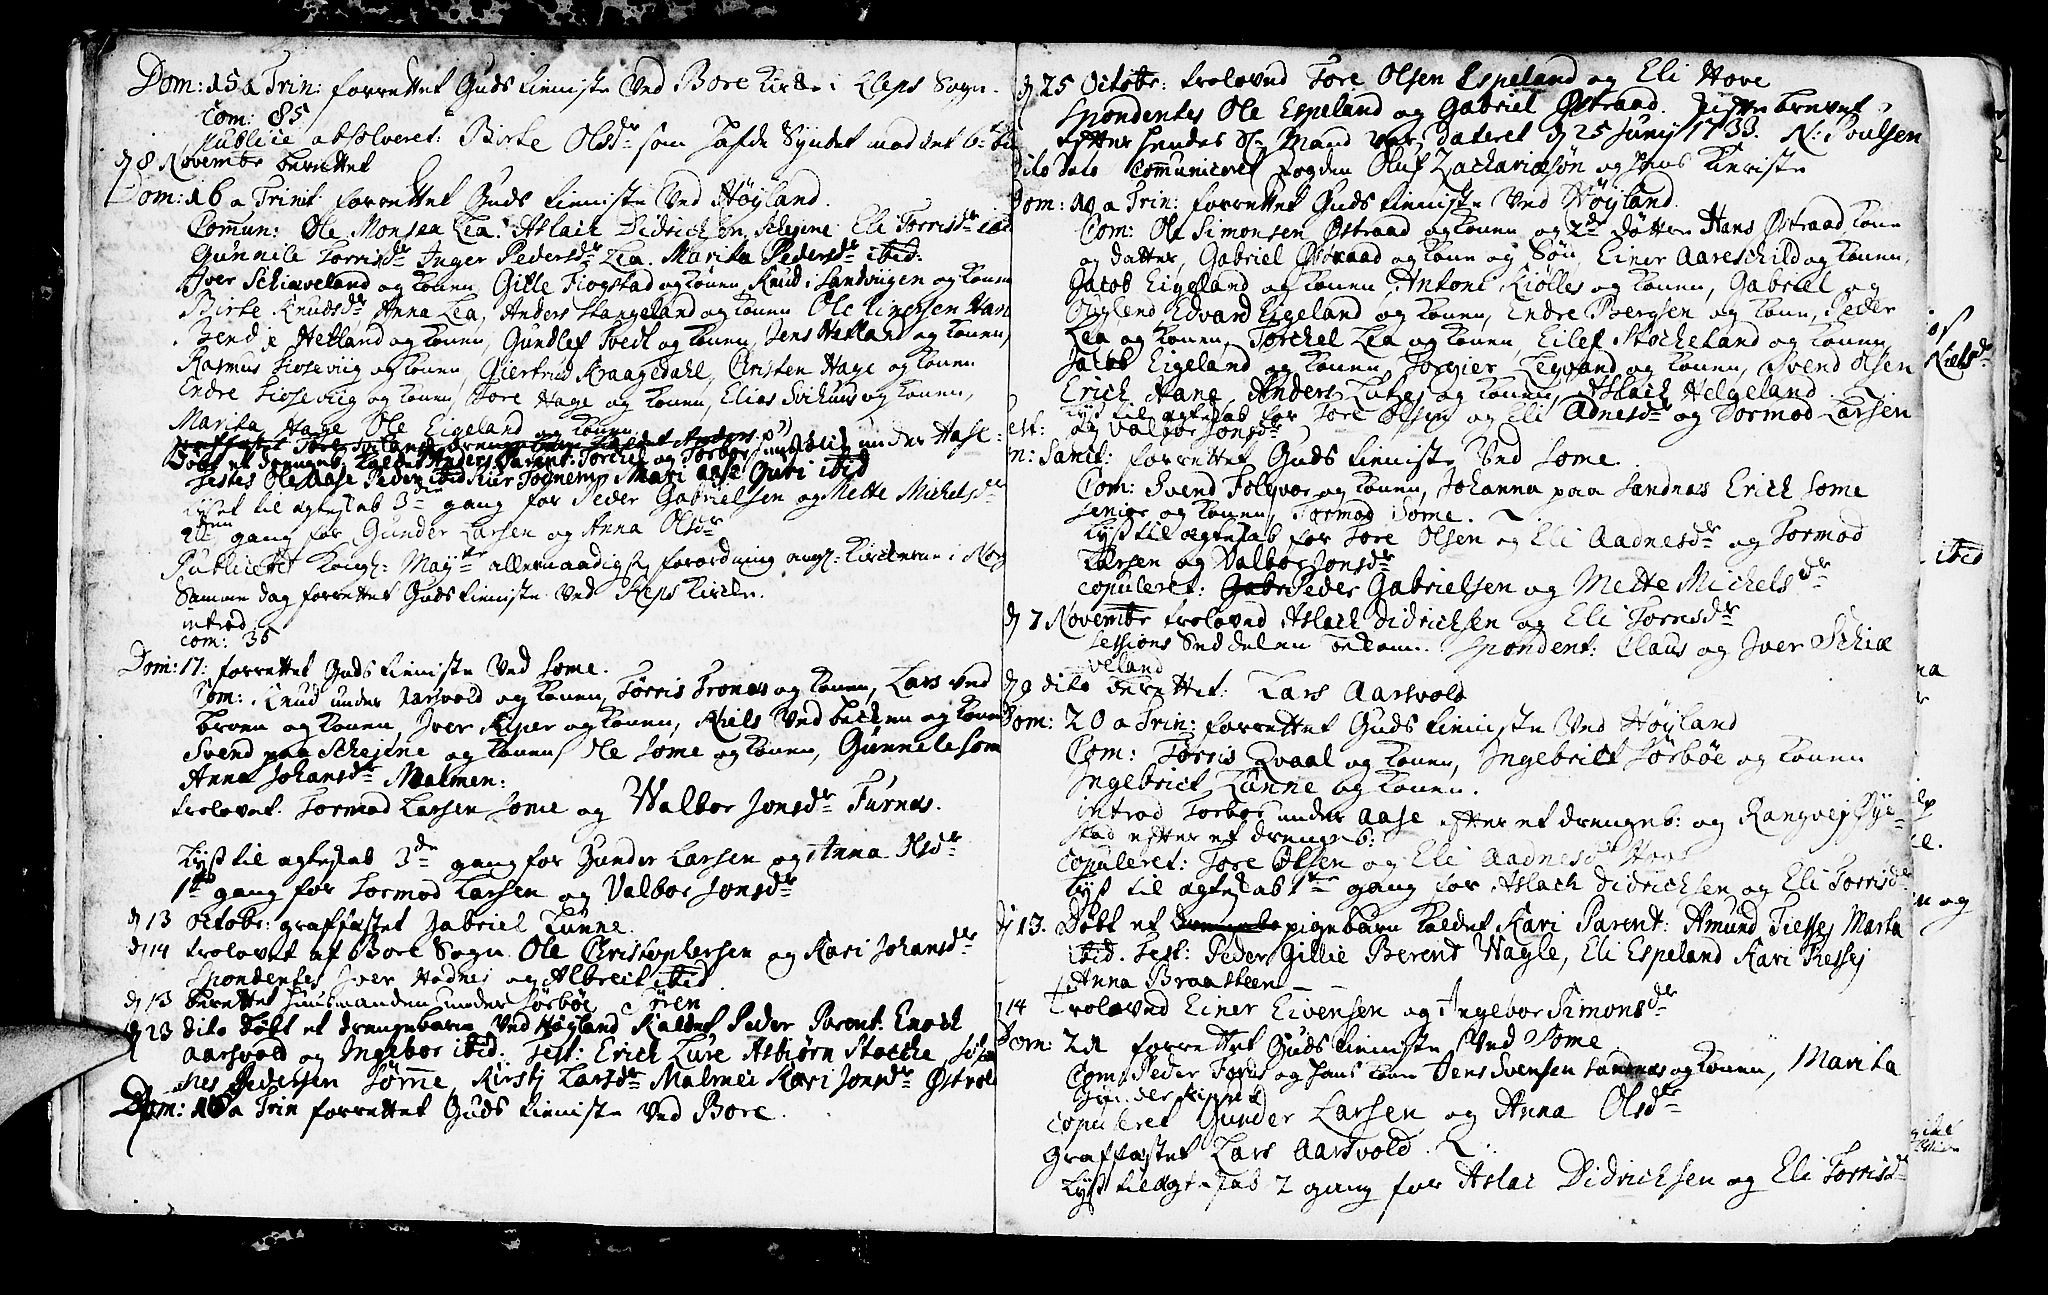 Dom: 15 a Trin: forrettet Guds tieniste Ved Bore Kircke i Kleps Sogn.
Com: 85
Publice absolveret: Birte Olsdr som hafde Syndet mod det 6te bud
d 8 Novembr berettet
Dom: 16 a Trinit: forrettet Guds tieniste Ved Höyland.
Comun: Ole Monsen Lea. Aslach Didrichsen Schejene Eli Torrisdr ibid
Gunnele Torrisdr Inger Pedersdr Lea. Marita Pedersdr ibid:
Iver Schiæveland og Konen, Gitle Frogstad og Konen, Knud i Sandvigen og Konen
Birte Knudsdr, Anna Lea, Anders Stangeland og Konen Ole Einersen Hana
Bendix Hetland og Konen, Gundlef Tvedt og Konen, Jens Hetland og Konen,
Rasmus Lioseviig og Konen, Giertrud Kraagedahl, Christen Hage og Konen
Endre Lioseviig og Konen, Tore Hage og Konen, Elias Svihuus og Konen,
Marita Hage Ole Eigeland og Konen
Döbt et drengeb. kaldet Anders Parent: Torchel og Torbor under Aase:
Testes Ole Aase Peder ibid Mari Aase Guri ibid
Lyst til ægteskab 3de gang for Peder Gabrielsen og Mette Michelsdr
2den gang for Gunder Larsen og Anna Olsdr
Publicitet Kongl: Mayts allernaadigste forordning angl: Kirckerne i Norge
Samme dag forrettet Guds tieniste Ved Kleps Kircke.
introd.
com: 35
Dom: 17: forrettet Guds tieniste Ved Some.
Com: Knud under Aarsvold og Konen, Torris Tronæs og Konen, Lars Ved
broen og Konen, Iver Riper og Konen, Niels Ved becken og Konen
Svend paa Schejene og Konen, Ole Some og Konen, Gunnele Som
Anna Johansdr Malmen:
trolovet. Tormod Larsen Some og Walbor Jonsdr Furnes.
Lyst til ægteskab 3de gang for Gunder Larsen og Anna Olsdr
1te gang for Tormod Larsen og Valbor Jonsdr
d 13 Octobr: graffæstet Gabriel Lunne.
d 14 trolovet af Bore Sogn Ole Christophersen og Kari Johansdr
Spondentes Iver Hodnei og Albreit ibid.
d 13 berettet huusmanden under Sörböe Sören
d 23 dito döbt et drengebarn Ved Höyland Kaldet Peder Parent. Enoch
Aarsvold og Ingebor ibid. Test: Erich Lure Asbiörn Stocke, Johan
nes Pedersen Sömme, Kirsti Larsdr Malmei Kari Jonsdr Östraa
Dom: 18 a Trin forrettet Guds tieniste Ved Bore.
d 25 Octobr: troloved Tore Olsen Espeland og Eli Hove
Spondentes Ole Espeland og Gabriel Östraad. Skifte brevet
efter hendes Sl. Mand var dateret d 25 Junij 1733. N: Poulsen
Dito dato communiceret fogden Oluf Zachariæsön og hans Kieriste
Dom: 19 a Trin: forrettet Guds tieniste Ved Höyland.
Com: Ole Simonsen Östraad og Konen og 2de döttre Hans Östraad Kone
og datter, Gabriel Östraad og Kone og Sön, Einer Aareschild og Konen,
Jacob Eigeland og Konen, Antoni Kiölles og Konen, Gabriel og
Edvard Eigeland og Konen, Endre Bergsen og Konen, Peder
Lea og Konen, Torchel Lea og Konen, Eilef Stocheland og Konen
Jacob Eigeland og Konen, Torgier Legvand og Konen, Svend Olsen
Erich Hane, Anders Lutes og Konen, Aslach Helgeland
Lyst til ægteskab for Tore Olsen og Eli Adnesdr og Tormod Larsen
og Valbor Jonsdr
n: Sanct: forrettet Guds tieniste Ved Some.
Com: Svend Folqvor og Konen, Johanna paa Sandnæs Erich Some
Senior og Konen, Tormod Some.
Lyst til ægteskab for Tore Olsen og Eli Aadnesdr og Tormod
Larsen og Valbor Jonsdr
copuleret: Peder Gabrielsen og Mette Michelsdr
d 7 Novembr troloved Aslach Didrichsen og Eli Torrisdr
Sessions Seddelen Spondent: Claus og Iver Schiæ
veland
d 9 dito berettet: Lars Aarsvold
Dom: 20 a Trin: forrettet Guds tieniste Ved Höyland
Com: Torris Qvaal og Konen, Ingebrict Sörböe og Konen
Ingebrict Lunne og Konen.
introd Torbor under Aase efter et drengeb: og Rangvej Öye=
stad efter et drengeb:
Copuleret: Tore Olsen og Eli Aadnesdr Hove
Lyst til ægteskab 1te gang for Aslach Didrichsen og Eli Torrisdr
d 13. Döbt et pigebarn kaldet Kari Parent: Amund Tiessej Marta
ibid. Test: Peder Gillie Berent Wagle, Eli Espeland Kari Tiessej
Anna Braasteen
14 Trolovend Einer Eivensen og Ingebor Simonsdr
Dom: 21 forrettet Guds tieniste Ved Some
Com. Peder Forus og hans Kone Jens Svensen Sandnæs og Konen, Marita
copuleret Gunder Larsen og Anna Olsdr
graffæstet Lars Aarsvold.
Lyst til ægteskab 2 gang for Aslac Didrichsen og Eli Torrisdr
Nielsdr
ibid